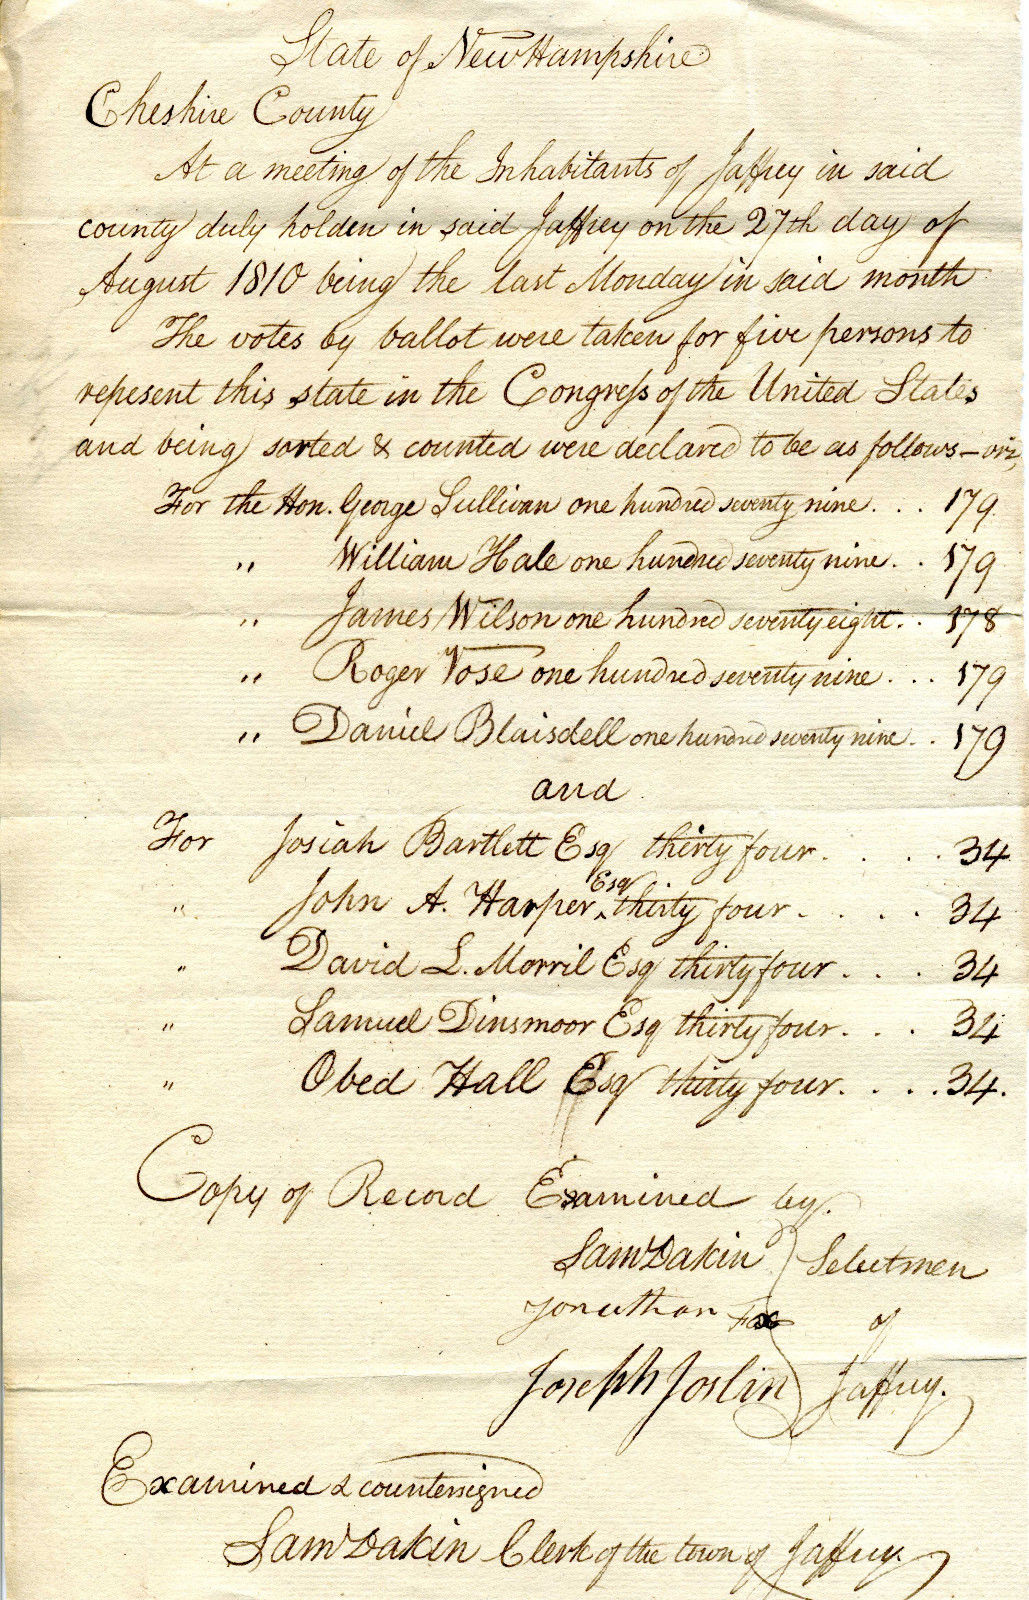 State of New Hampshire
Cheshire County
At a meeting of the Inhabitants of Jaffrey in said
county duly holden in said Jaffrey on the 27th day of
August 1810 being the last Monday in said month
The votes by ballot were taken for five persons to
repesent this state in the Congress of the United States
and being sorted & counted were declared to be as follows – viz,
For the Hon. George Sullivan one hundred seventy nine . . . 179
" William Hale one hundred seventy nine . . 179
" James Wilson one hundred seventy eight . . 178
" Roger Vose one hundred seventy nine . . . 179
" Daniel Blaisdell one hundred seventy nine . . 179
and
For Josiah Bartlett Esq thirty four . . . . 34
" John A. Harper ^Esq thirty four . . . . 34
" David L. Morril Esq thirty four . . . 34
" Samuel Dinsmoor Esq thirty four . . . 34
" Obed Hall Esq thirty four . . . . 34.
Copy of Record Examined by.
Saml Dakin Selectmen
Jonathan Fox of
Joseph Joslin Jaffrey.
Examined & countersigned
Saml Dakin Clerk of the town of Jaffrey.